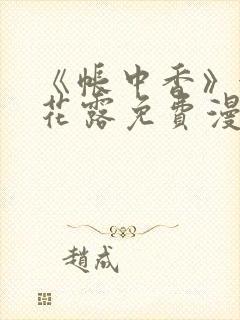 《帐中香》
花露免費漫
趙成